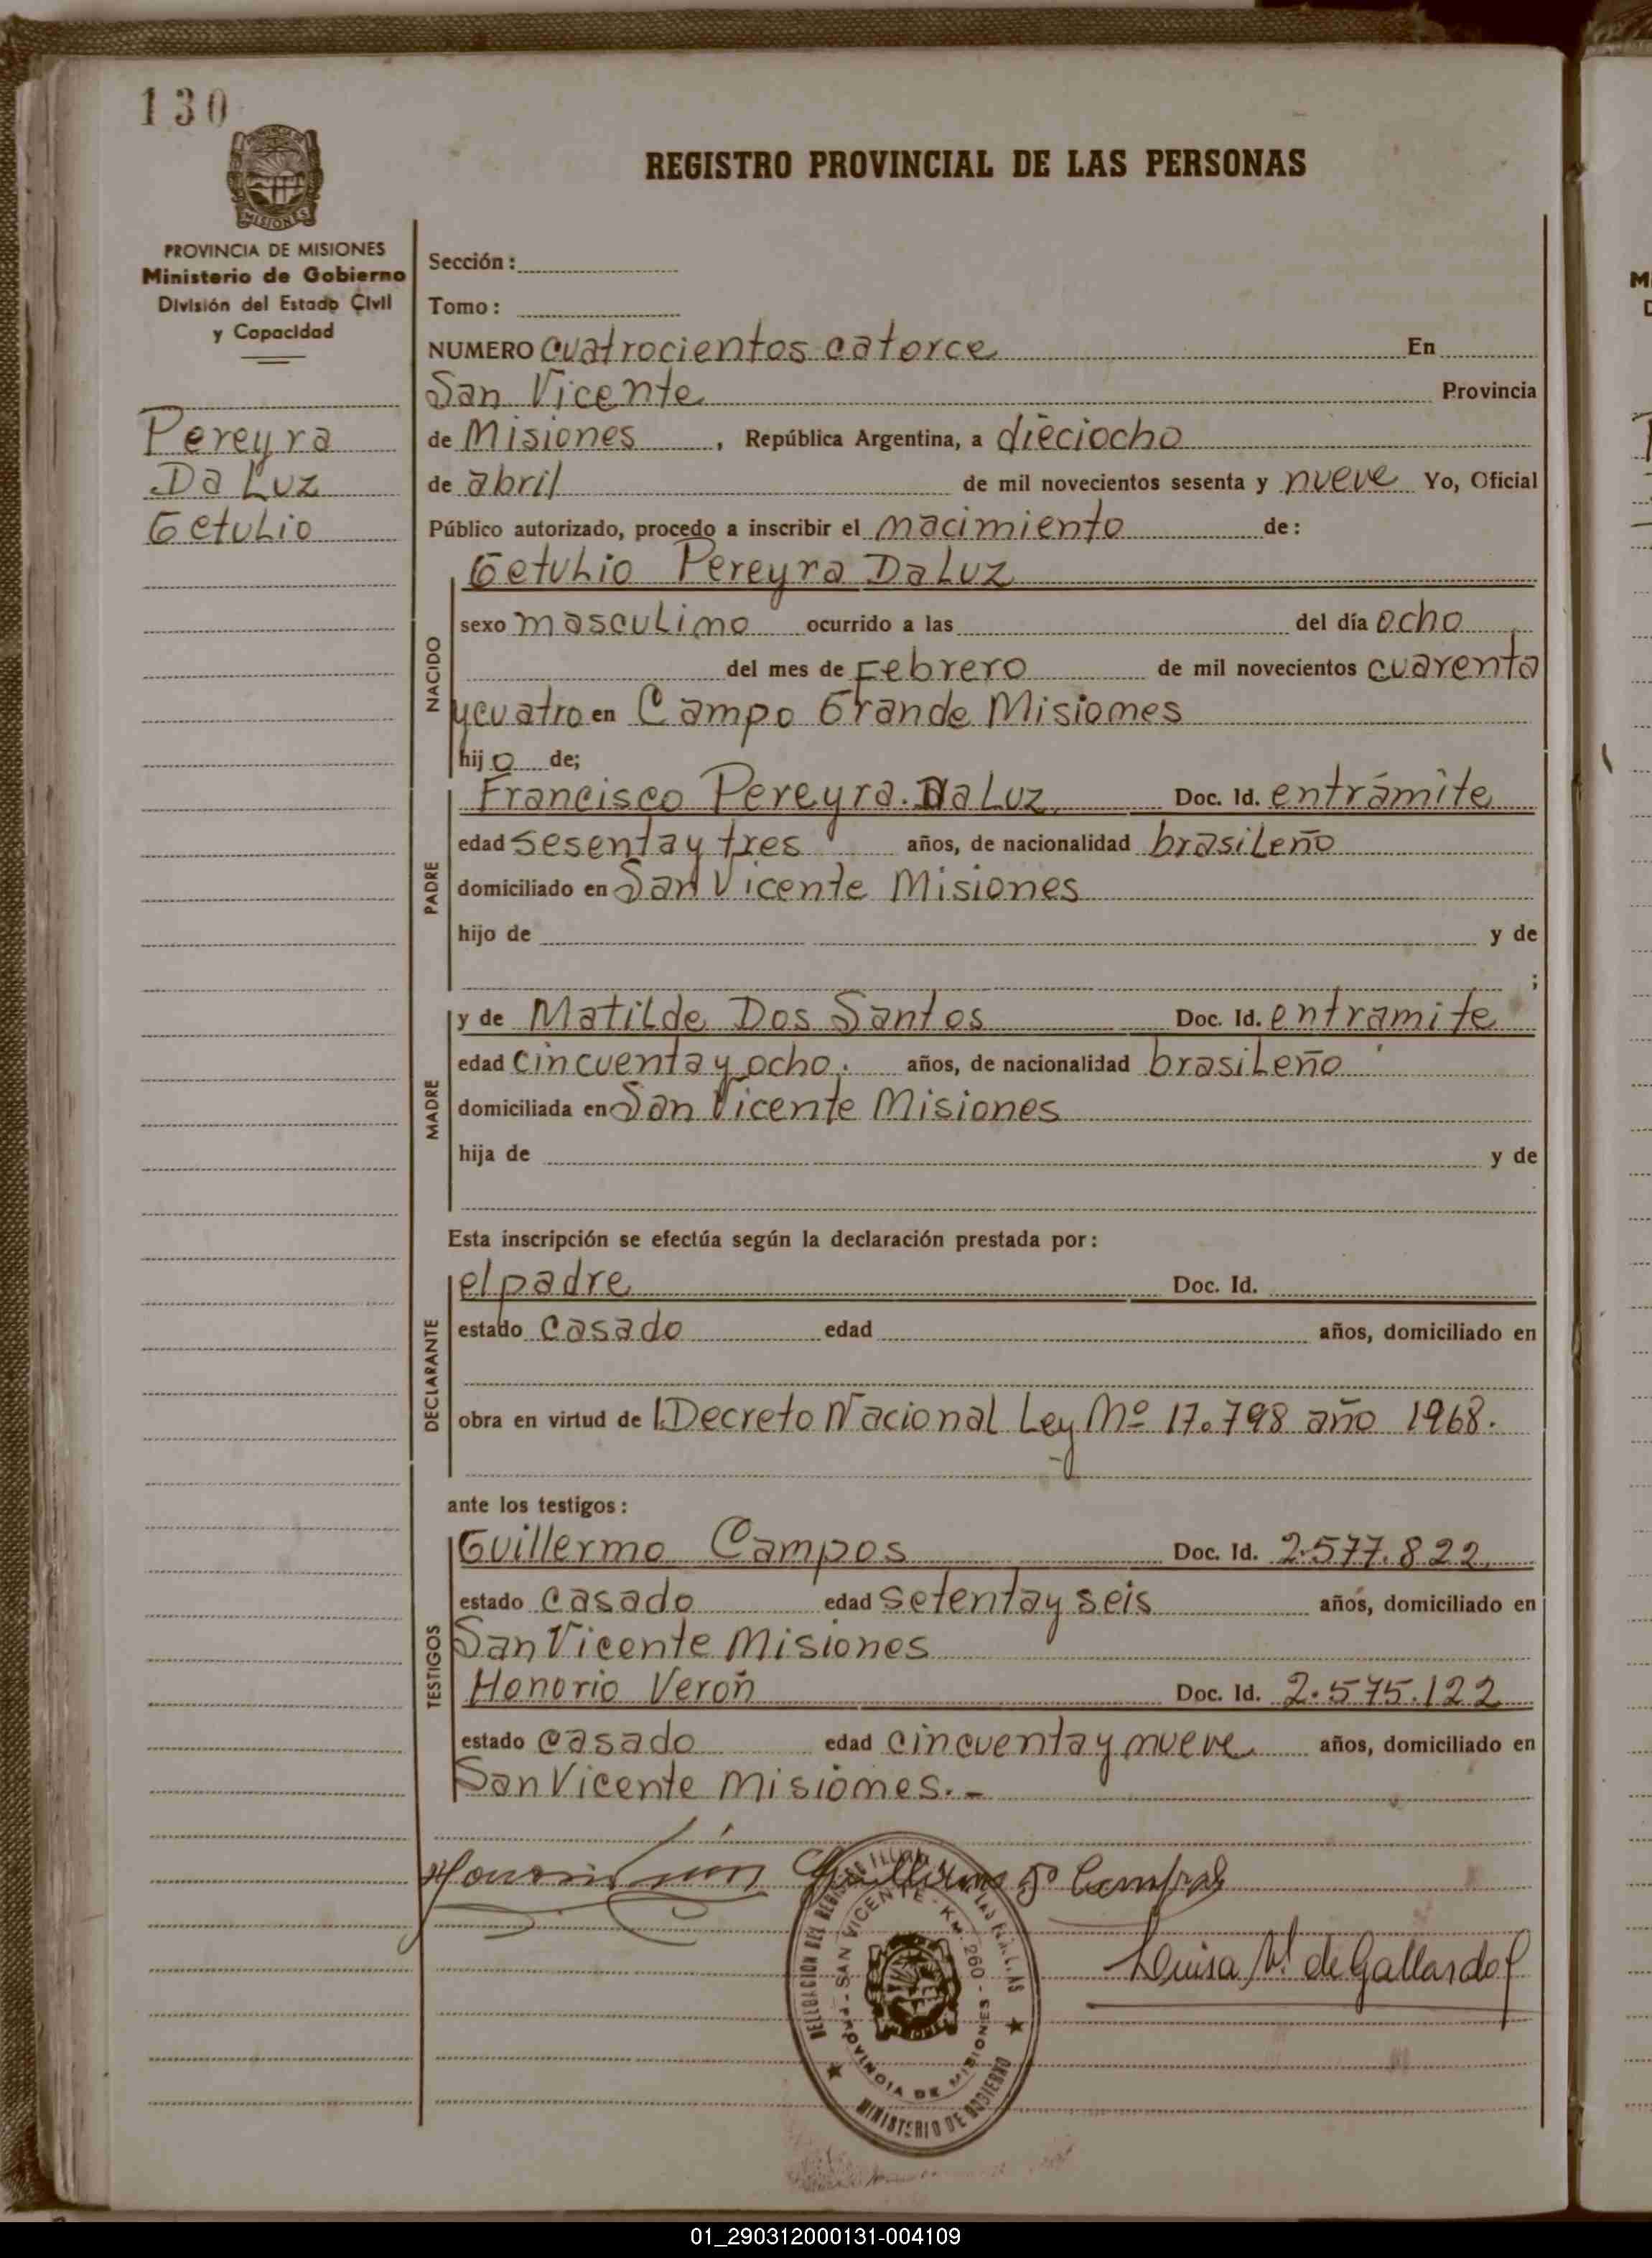 130
MISIONES
PROVINCIA DE MISIONES
Ministerio de Gobierno
División del Estado Civil
y Capacidad
Pereyra
Da Luz
Getulio
REGISTRO PROVINCIAL DE LAS PERSONAS
Sección:
Tomo:
NUMERO cuatrocientos catorce En
San Vicente Provincia
de Misiones, República Argentina, a dieciocho
de abril de mil novecientos sesenta y nueve Yo, Oficial
Público autorizado, procedo a inscribir el nacimiento de:
Getulio Pereyra Da Luz
NACIDO
sexo masculino ocurrido a las del día ocho
del mes de Febrero de mil novecientos cuarenta
y cuatro en Campo Grande Misiones
hijo de;
PADRE
Francisco Pereyra Da Luz Doc. Id. en trámite
edad sesenta y tres años, de nacionalidad brasileño
domiciliado en San Vicente Misiones
hijo de y de
;
MADRE
y de Matilde Dos Santos Doc. Id. en tramite
edad cincuenta y ocho. años, de nacionalidad brasileño
domiciliada en San Vicente Misiones
hija de y de
Esta inscripción se efectúa según la declaración prestada por:
DECLARANTE
el padre Doc. Id.
estado casado edad años, domiciliado en
obra en virtud de Decreto Nacional Ley Nº 17.798 año 1968.
ante los testigos:
TESTIGOS
Guillermo Campos Doc. Id. 2.577.822
estado casado edad setenta y seis años, domiciliado en
San Vicente Misiones
Honorio Verón Doc. Id. 2.575.122
estado casado edad cincuenta y nueve años, domiciliado en
San Vicente Misiones.-
Guillermo Campos
Luisa de Gallardo
SAN VICENTE - KM. 260 - PROVINCIA DE MISIONES
MINISTERIO DE GOBIERNO
01_290312000131-004109